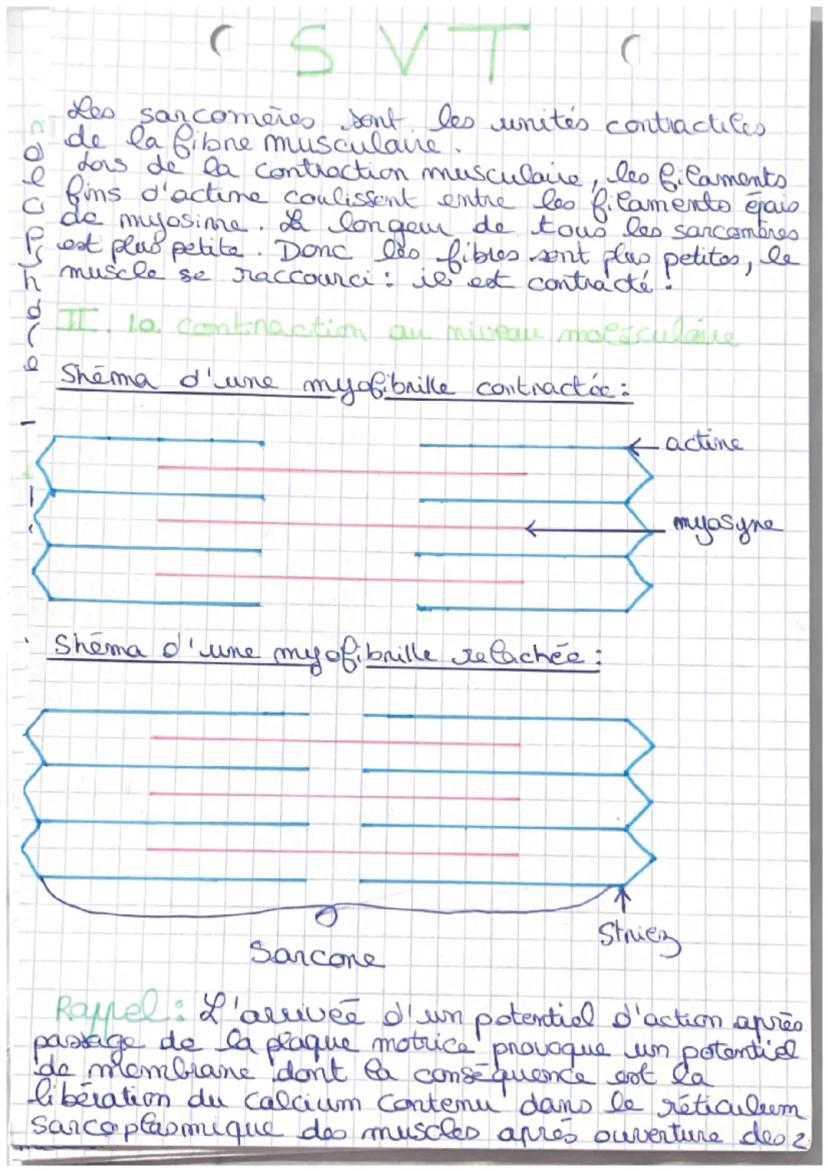 SVT
Les sarcomères sont les unités contractiles
de la fibre musculaire.
Lors de la contraction musculaire, les filaments
fins d'actine coulissent entre les filaments épais
de myosinne. La longeur de tous les sarcomères
est plus petite. Donc les fibres sont plus petites, le
muscle se raccourci : il est contracté.
II. la contraction au niveau molésculaire
Shéma d'une myofibrille contractée :
actine
myosyne
Shéma d'une myofibrille relachée :
Striez
Sarcone
Rappel : L'arrivée d'un potentiel d'action après
passage de la plaque motrice provoque un potentiel
de membrane dont la conséquence est la
libération du calcium contenu dans le réticulum
sarcoplasmique des muscles après ouverture des 2